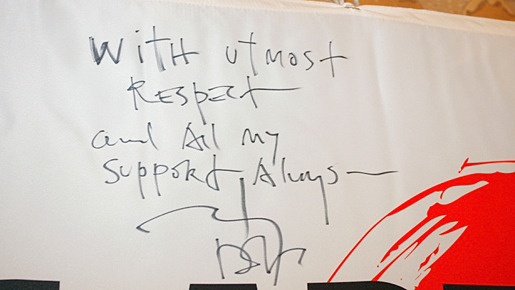 With utmost
Respect
and All my
support. Always